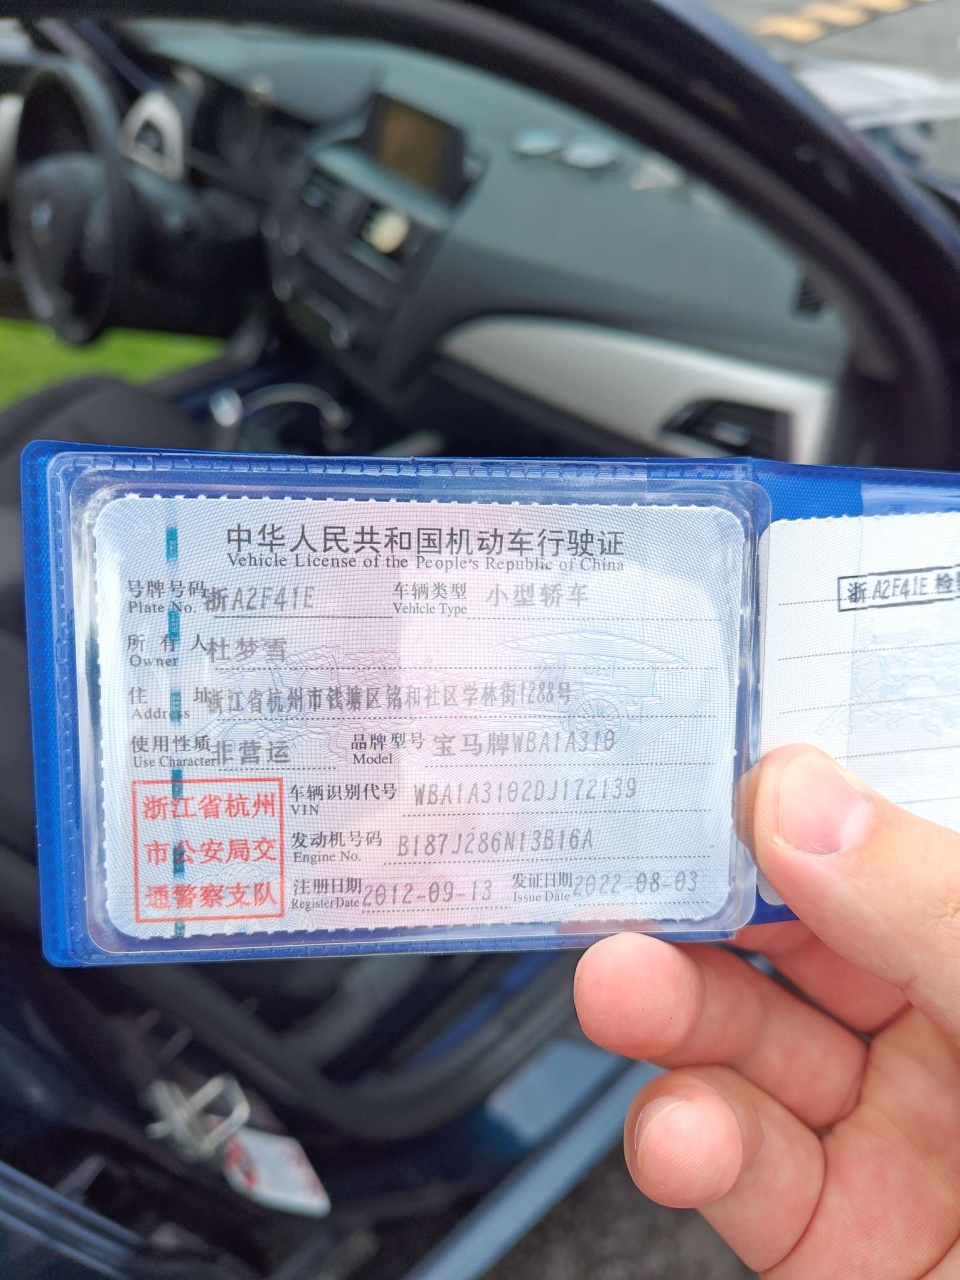 中华人民共和国机动车行驶证
Vehicle License of the People's Republic of China
号牌号码 浙A2F41E 车辆类型 小型轿车
Plate No. Vehicle Type
所有人 杜梦雪
Owner
住址 浙江省杭州市钱塘区铭和社区学林街1288号
Address
使用性质 非营运 品牌型号 宝马牌WBA1A310
Use Character Model
浙江省杭州
市公安局交
通警察支队
车辆识别代号 WBA1A3102DJ172139
VIN
发动机号码 B187J286N13B16A
Engine No.
注册日期 2012-09-13 发证日期 2022-08-03
Register Date Issue Date
浙A2F41E 检